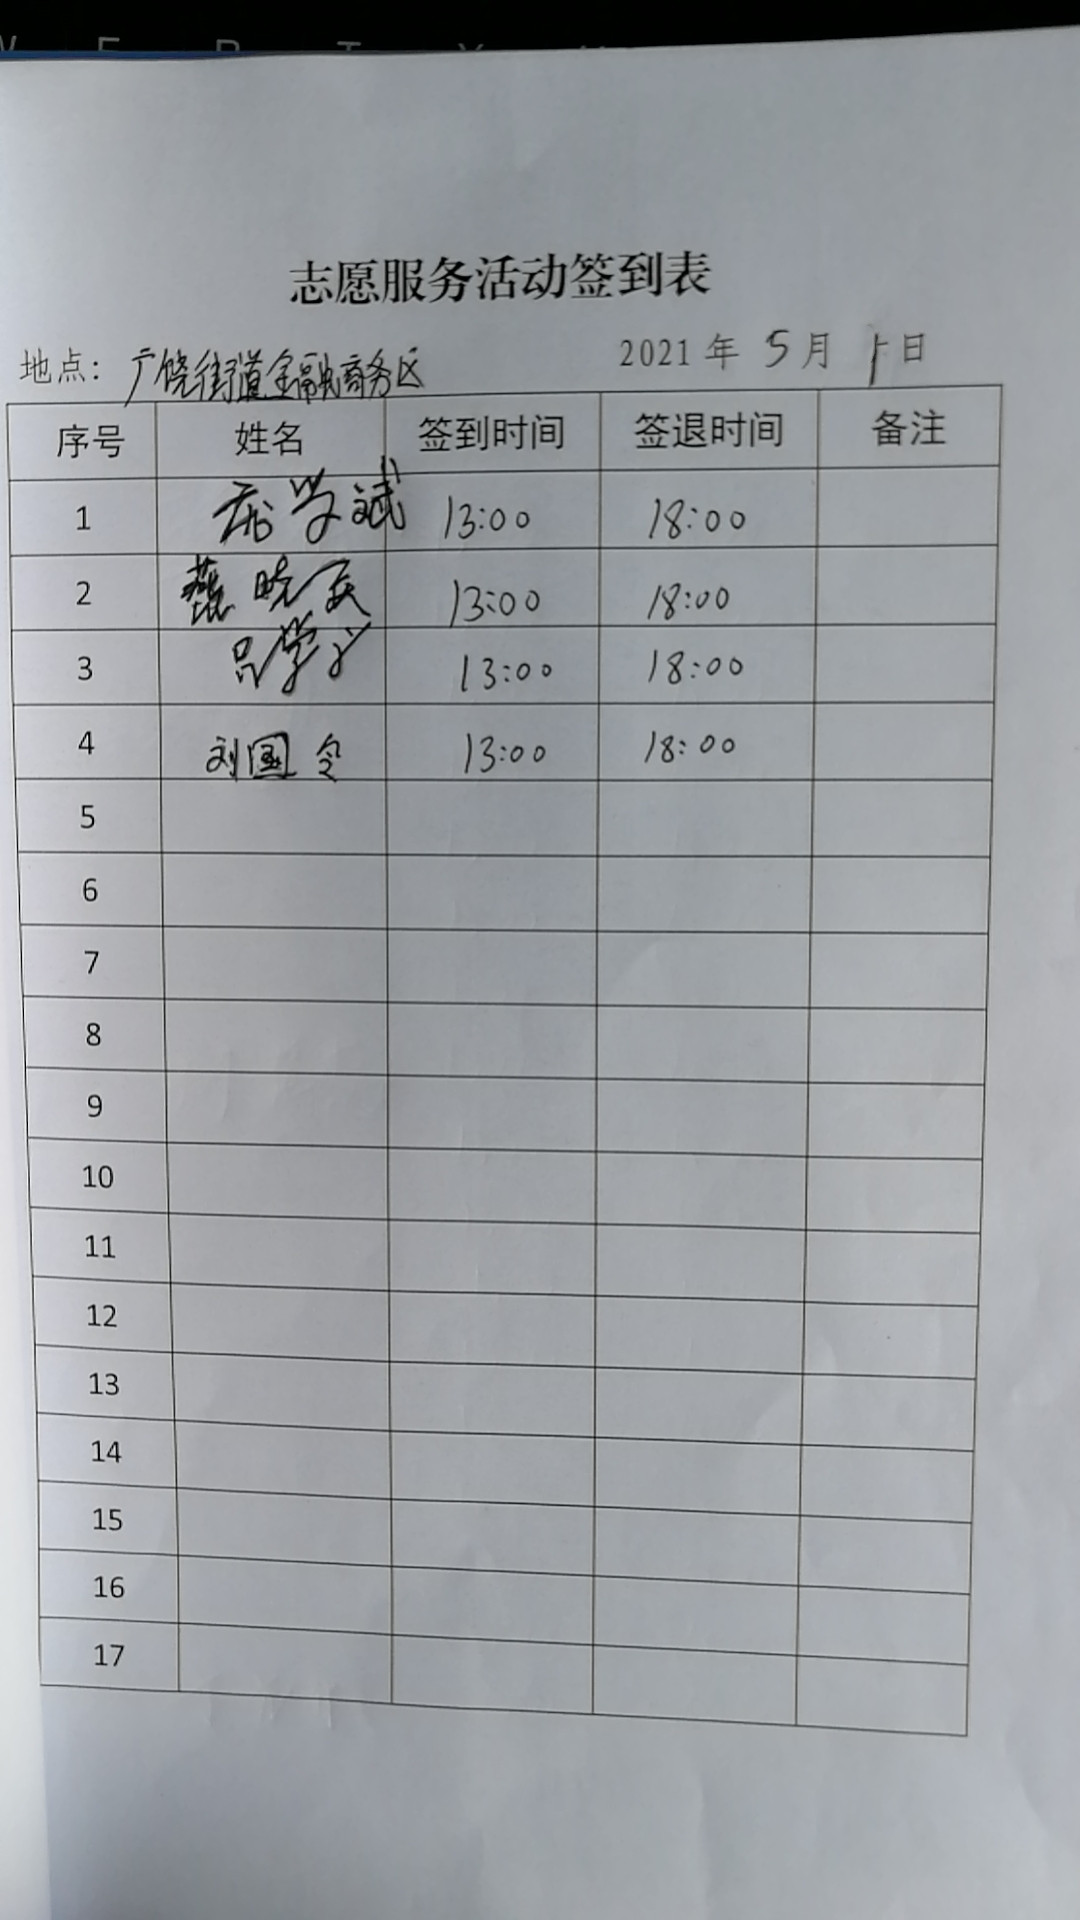 志愿服务活动签到表
地点：广饶街道金融商务区 2021年 5月 1日
序号 姓名 签到时间 签退时间 备注
1 学斌 13:00 18:00
2 晓 13:00 18:00
3 吕学 13:00 18:00
4 刘国令 13:00 18:00
5
6
7
8
9
10
11
12
13
14
15
16
17